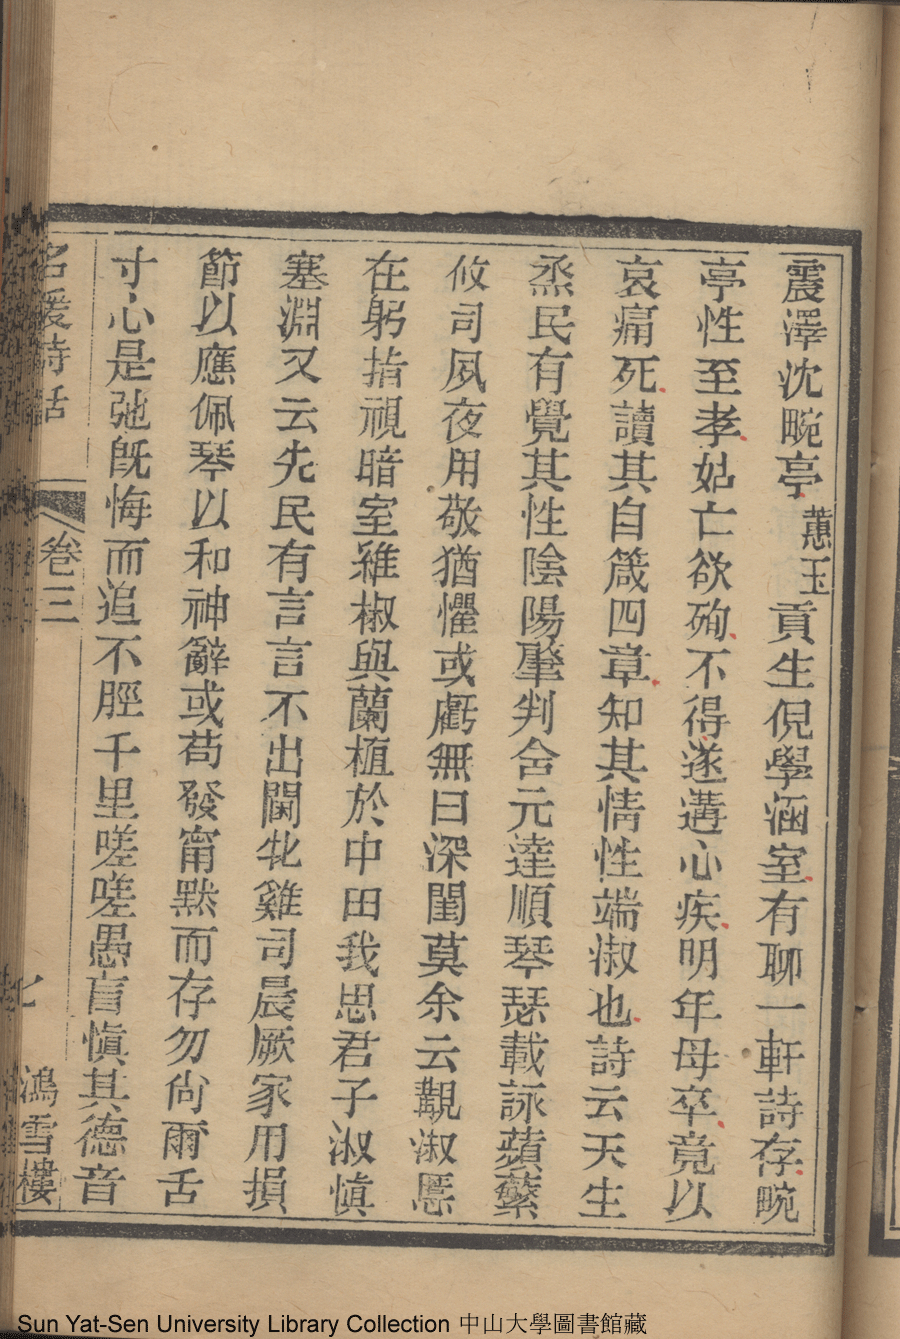 震澤沈畹亭蕙玉貢生倪學涵室有聊一軒詩存畹
亭性至孝姑亡欲殉不得遂遘心疾明年母卒竟以
哀痛死讀其自箴四章知其情性端淑也詩云天生
烝民有覺其性陰陽肇判含元達順琴瑟載詠蘋蘩
攸司夙夜用敬猶懼或虧無曰深閨莫余云覯淑慝
在躬指視暗室維椒與蘭植於中田我思君子淑慎
塞淵又云先民有言言不出閫牝雞司晨厥家用損
節以應佩琴以和神辭或苟發甯默而存勿尙爾舌
寸心是弛旣悔而追不脛千里嗟嗟愚盲愼其德音
名媛詩話
卷三
七
鴻雪樓
Sun Yat-Sen University Library Collection 中山大學圖書館藏